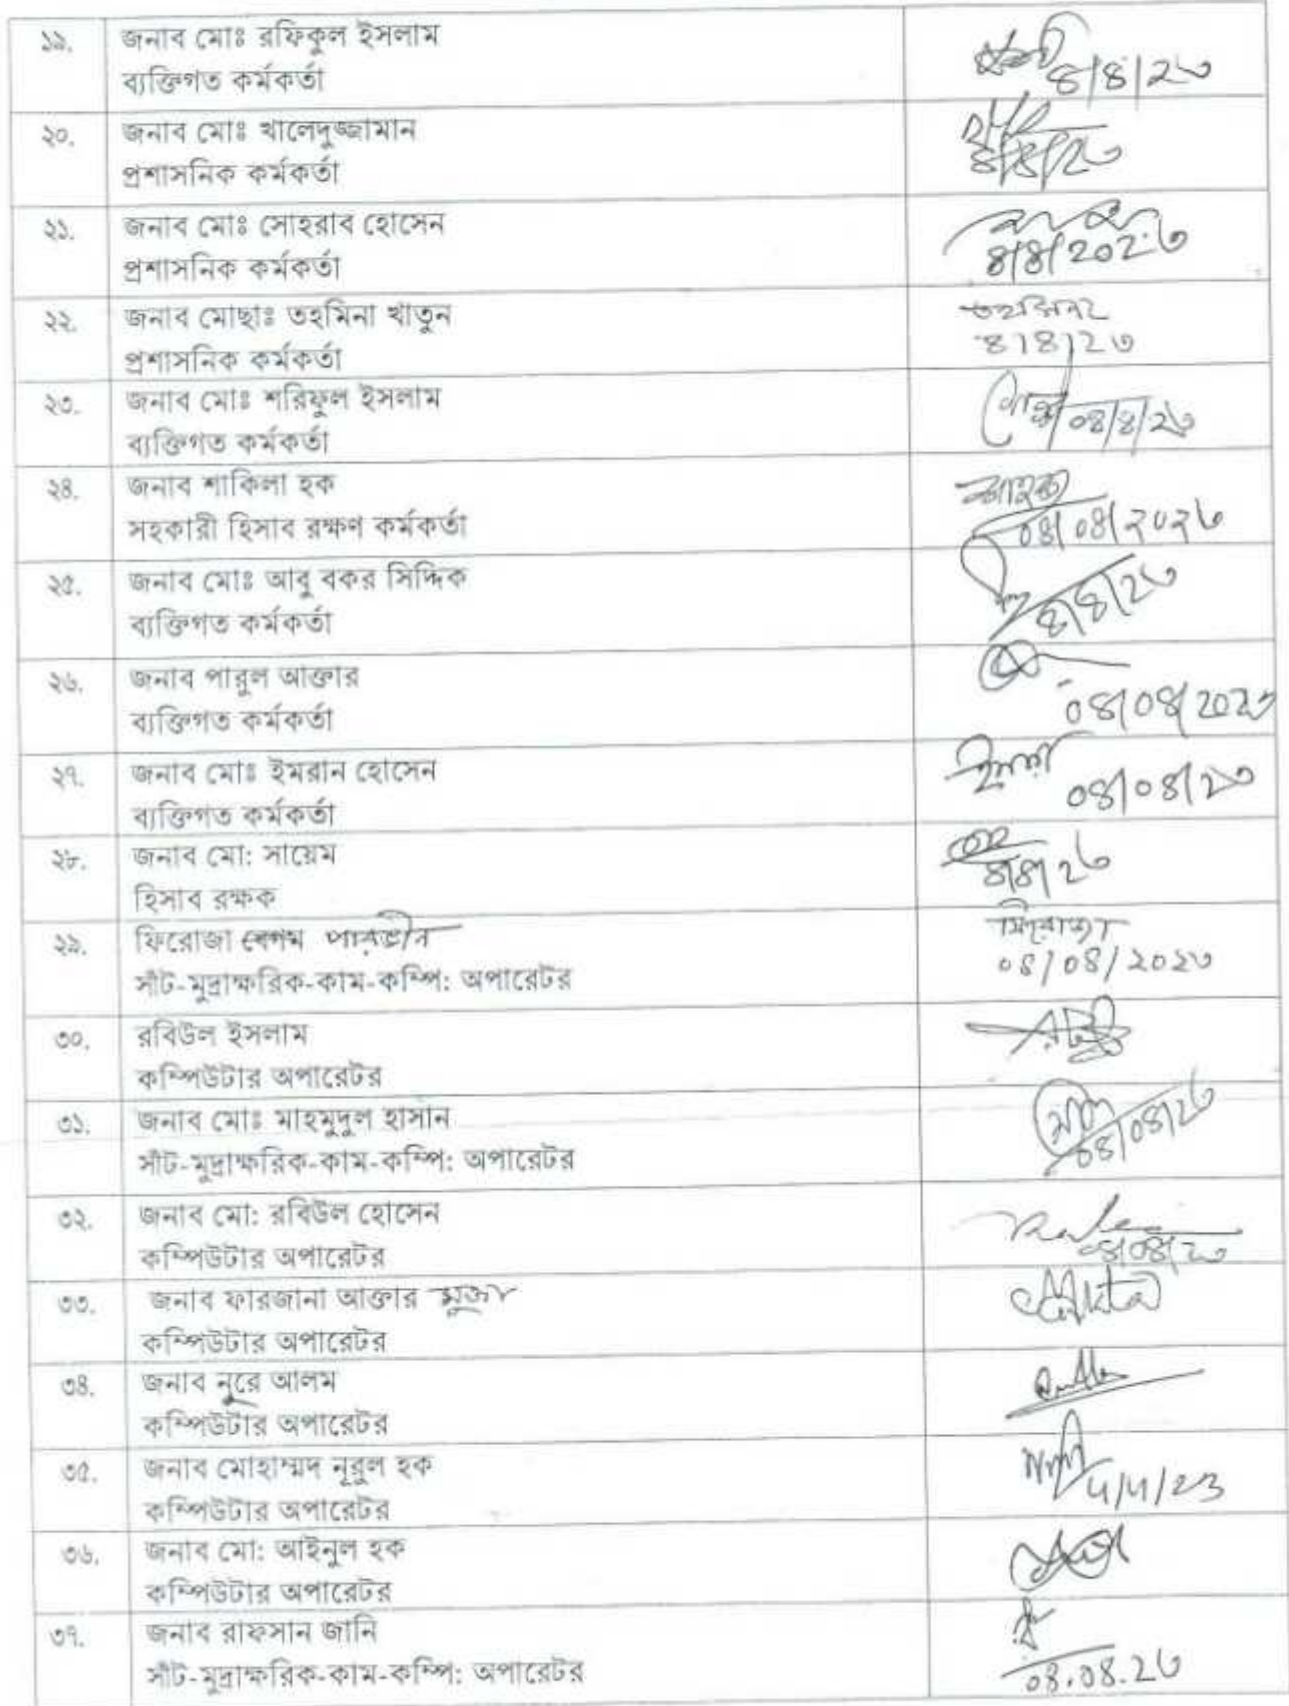 ১৯. জনাব মোঃ রফিকুল ইসলাম
ব্যক্তিগত কর্মকর্তা
৪/৪/২৩
২০. জনাব মোঃ খালেদুজ্জামান
প্রশাসনিক কর্মকর্তা
৪/৪/২৩
২১. জনাব মোঃ সোহরাব হোসেন
প্রশাসনিক কর্মকর্তা
৪/৪/২০২৩
২২. জনাব মোছাঃ তহমিনা খাতুন তহমিনা
প্রশাসনিক কর্মকর্তা ৪/৪/২৩
২৩. জনাব মোঃ শরিফুল ইসলাম
ব্যক্তিগত কর্মকর্তা
০৪/৪/২৩
২৪. জনাব শাকিলা হক
সহকারী হিসাব রক্ষণ কর্মকর্তা ০৪/০৪/২০২৩
২৫. জনাব মোঃ আবু বকর সিদ্দিক
ব্যক্তিগত কর্মকর্তা ৪/৪/২৩
২৬. জনাব পারুল আক্তার
ব্যক্তিগত কর্মকর্তা ০৪/০৪/২০২৩
২৭. জনাব মোঃ ইমরান হোসেন
ব্যক্তিগত কর্মকর্তা ০৪/০৪/২৩
২৮. জনাব মো: সায়েম
হিসাব রক্ষক ৪/৪/২৩
২৯. ফিরোজা বেগম পারভীন ফিরোজা
সাঁট-মুদ্রাক্ষরিক-কাম-কম্পি: অপারেটর ০৪/০৪/২০২৩
৩০. রবিউল ইসলাম
কম্পিউটার অপারেটর
৩১. জনাব মোঃ মাহমুদুল হাসান
সাঁট-মুদ্রাক্ষরিক-কাম-কম্পি: অপারেটর ০৪/০৪/২৩
৩২. জনাব মো: রবিউল হোসেন
কম্পিউটার অপারেটর ০৪/০৪/২৩
৩৩. জনাব ফারজানা আক্তার মুক্তা
কম্পিউটার অপারেটর
৩৪. জনাব নূরে আলম
কম্পিউটার অপারেটর
৩৫. জনাব মোহাম্মদ নূরুল হক
কম্পিউটার অপারেটর 4/4/23
৩৬. জনাব মো: আইনুল হক
কম্পিউটার অপারেটর
৩৭. জনাব রাফসান জানি
সাঁট-মুদ্রাক্ষরিক-কাম-কম্পি: অপারেটর ০৪.০৪.২৩